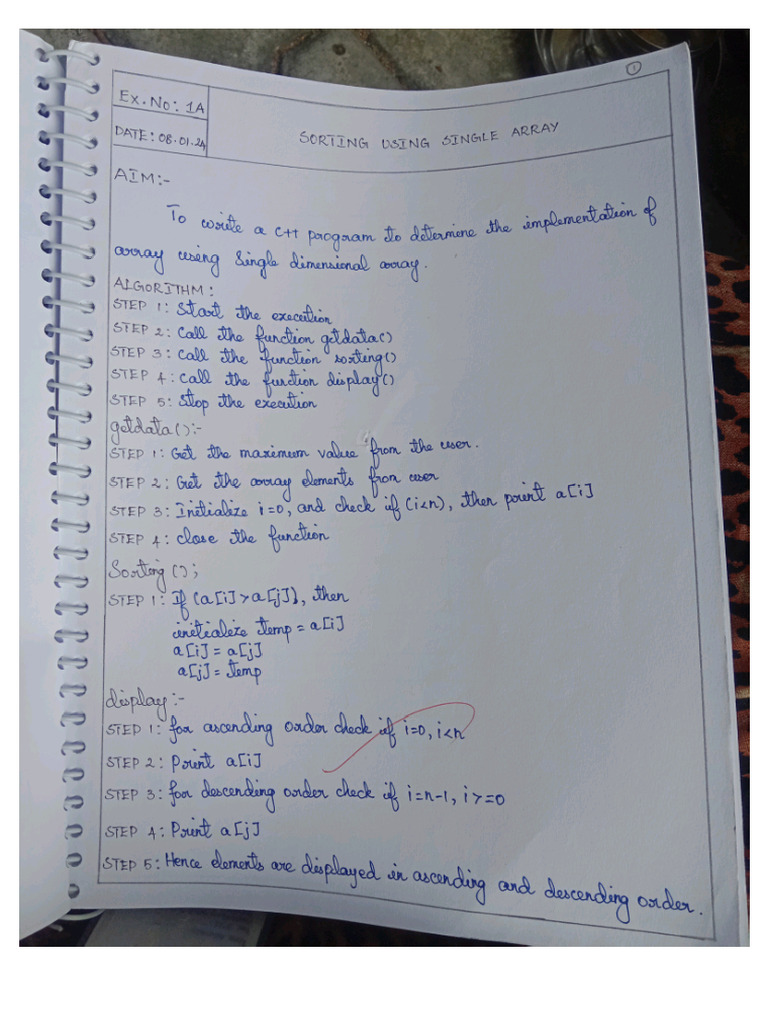 1
Ex.No: 1A
DATE: 08.01.24
SORTING USING SINGLE ARRAY
AIM:-
To write a C++ program to determine the implementation of
array using Single dimensional array.
ALGORITHM:
STEP 1: Start the execution
STEP 2: Call the function getdata()
STEP 3: Call the function sorting()
STEP 4: Call the function display()
STEP 5: Stop the execution
getdata():-
STEP 1: Get the maximum value from the user.
STEP 2: Get the array elements from user
STEP 3: Initialize i=0, and check if (i<n), then print a[i]
STEP 4: close the function
Sorting();
STEP 1: If (a[i]>a[j]), then
initialize temp = a[i]
a[i] = a[j]
a[j] = temp
display:-
STEP 1: for ascending order check if i=0, i<n
STEP 2: Print a[i]
STEP 3: for descending order check if i=n-1, i>=0
STEP 4: Print a[j]
STEP 5: Hence elements are displayed in ascending and descending order.